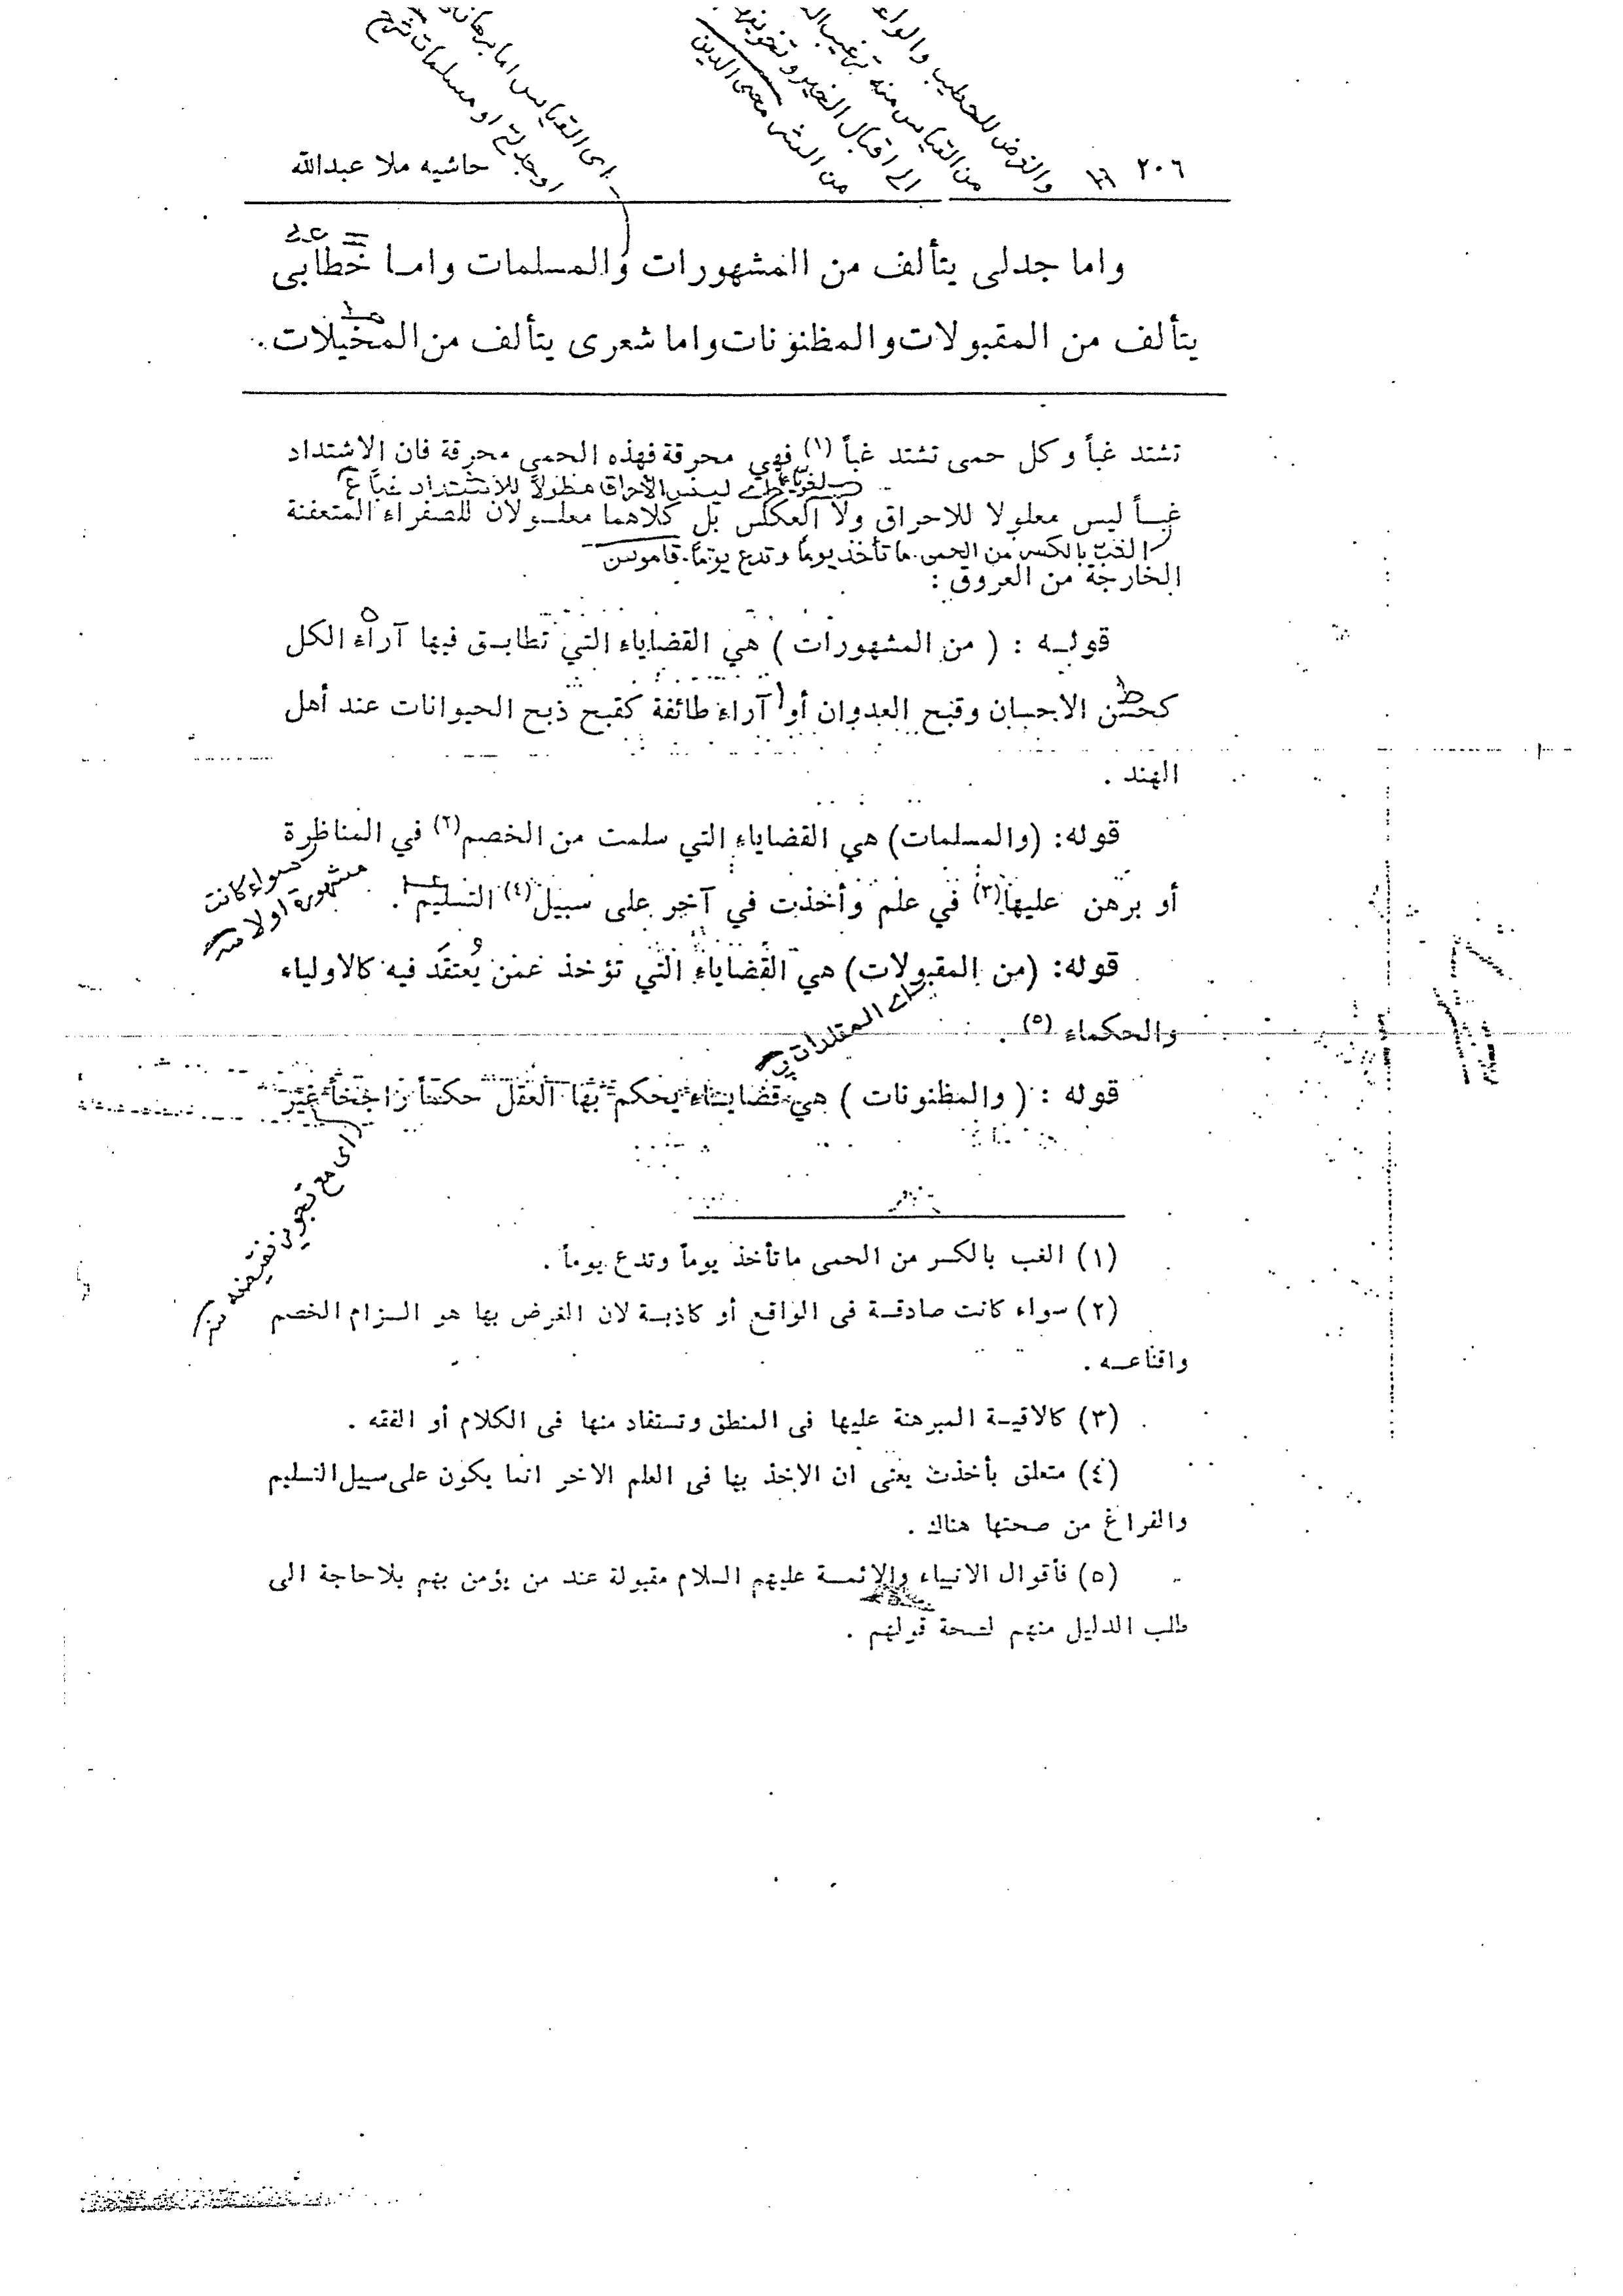 والغرض للخطيب والواعظ
من القياس منه ترغيب
الى اقبال الخير و
من الشر محى الدين
اى القياس اما برهانى
او جدلى او مسلمات شرح
٢٠٦
حاشيه ملا عبدالله
واما جدلى يتألف من المشهورات والمسلمات واما خطابى
يتألف من المقبولات والمظنونات واما شعرى يتألف من المخيلات .
تشتد غباً وكل حمى تشتد غباً (١) فهي محرقة فهذه الحمى محرقة فان الاشتداد
ليس الاحراق معلولا للاشتداد غبا ع
غباً ليس معلولا للاحراق ولا العكس بل كلاهما معلولان للصفراء المتعفنة
الغب بالكسر من الحمى ما تأخذ يوما وتدع يوما. قاموس
الخارجة من العروق :
قوله : ( من المشهورات ) هي القضاياء التي تطابق فيها آراء الكل
كحسن الاحسان وقبح العدوان أو آراء طائفة كقبح ذبح الحيوانات عند أهل
الهند .
قوله: (والمسلمات) هي القضاياء التي سلمت من الخصم (٢) في المناظرة
سواء كانت
مشهورة اولا
أو برهن عليها (٣) في علم وأخذت في آخر على سبيل (٤) التسليم .
قوله: (من المقبولات) هي القضاياء التي تؤخذ عمن يُعتقَد فيه كالاولياء
اى المقلدات
والحكماء (٥) .
قوله : ( والمظنونات ) هي قضاياء يحكم بها العقل حكماً راجحاً غير
اى مع تجويز نقيضه
(١) الغب بالكسر من الحمى ماتأخذ يوماً وتدع يوماً .
(٢) سواء كانت صادقة فى الواقع أو كاذبة لان الغرض بها هو الزام الخصم
واقناعه .
(٣) كالاقيسة المبرهنة عليها فى المنطق وتستفاد منها فى الكلام أو الفقه .
(٤) متعلق بأخذت يعنى ان الاخذ بها فى العلم الاخر انما يكون على سبيل التسليم
والفراغ من صحتها هناك .
(٥) فأقوال الانبياء والائمة عليهم السلام مقبولة عند من يؤمن بهم بلاحاجة الى
طلب الدليل منهم لصحة قولهم .